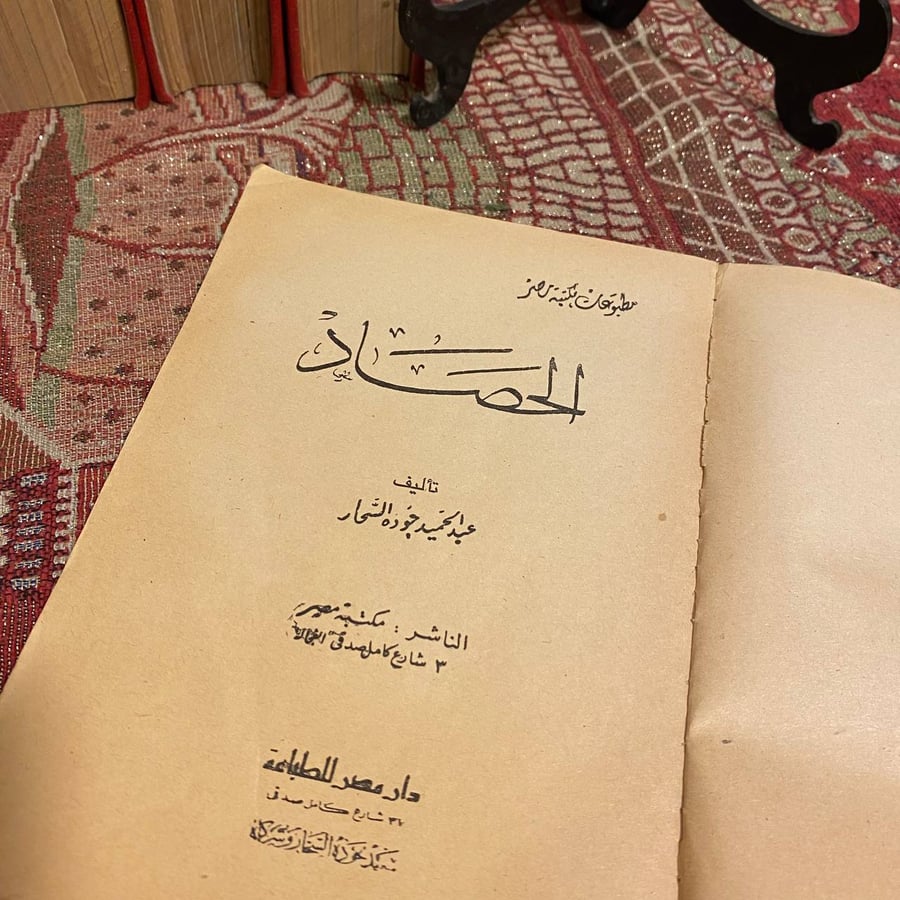 مطبوعات مكتبة مصر
الحصاد
تأليف
عبد الحميد جوده السحار
الناشر : مكتبة مصر
٣ شارع كامل صدقى الفجالة
دار مصر للطباعة
٣٧ شارع كامل صدقى
سعيد جودة السحار وشركاه